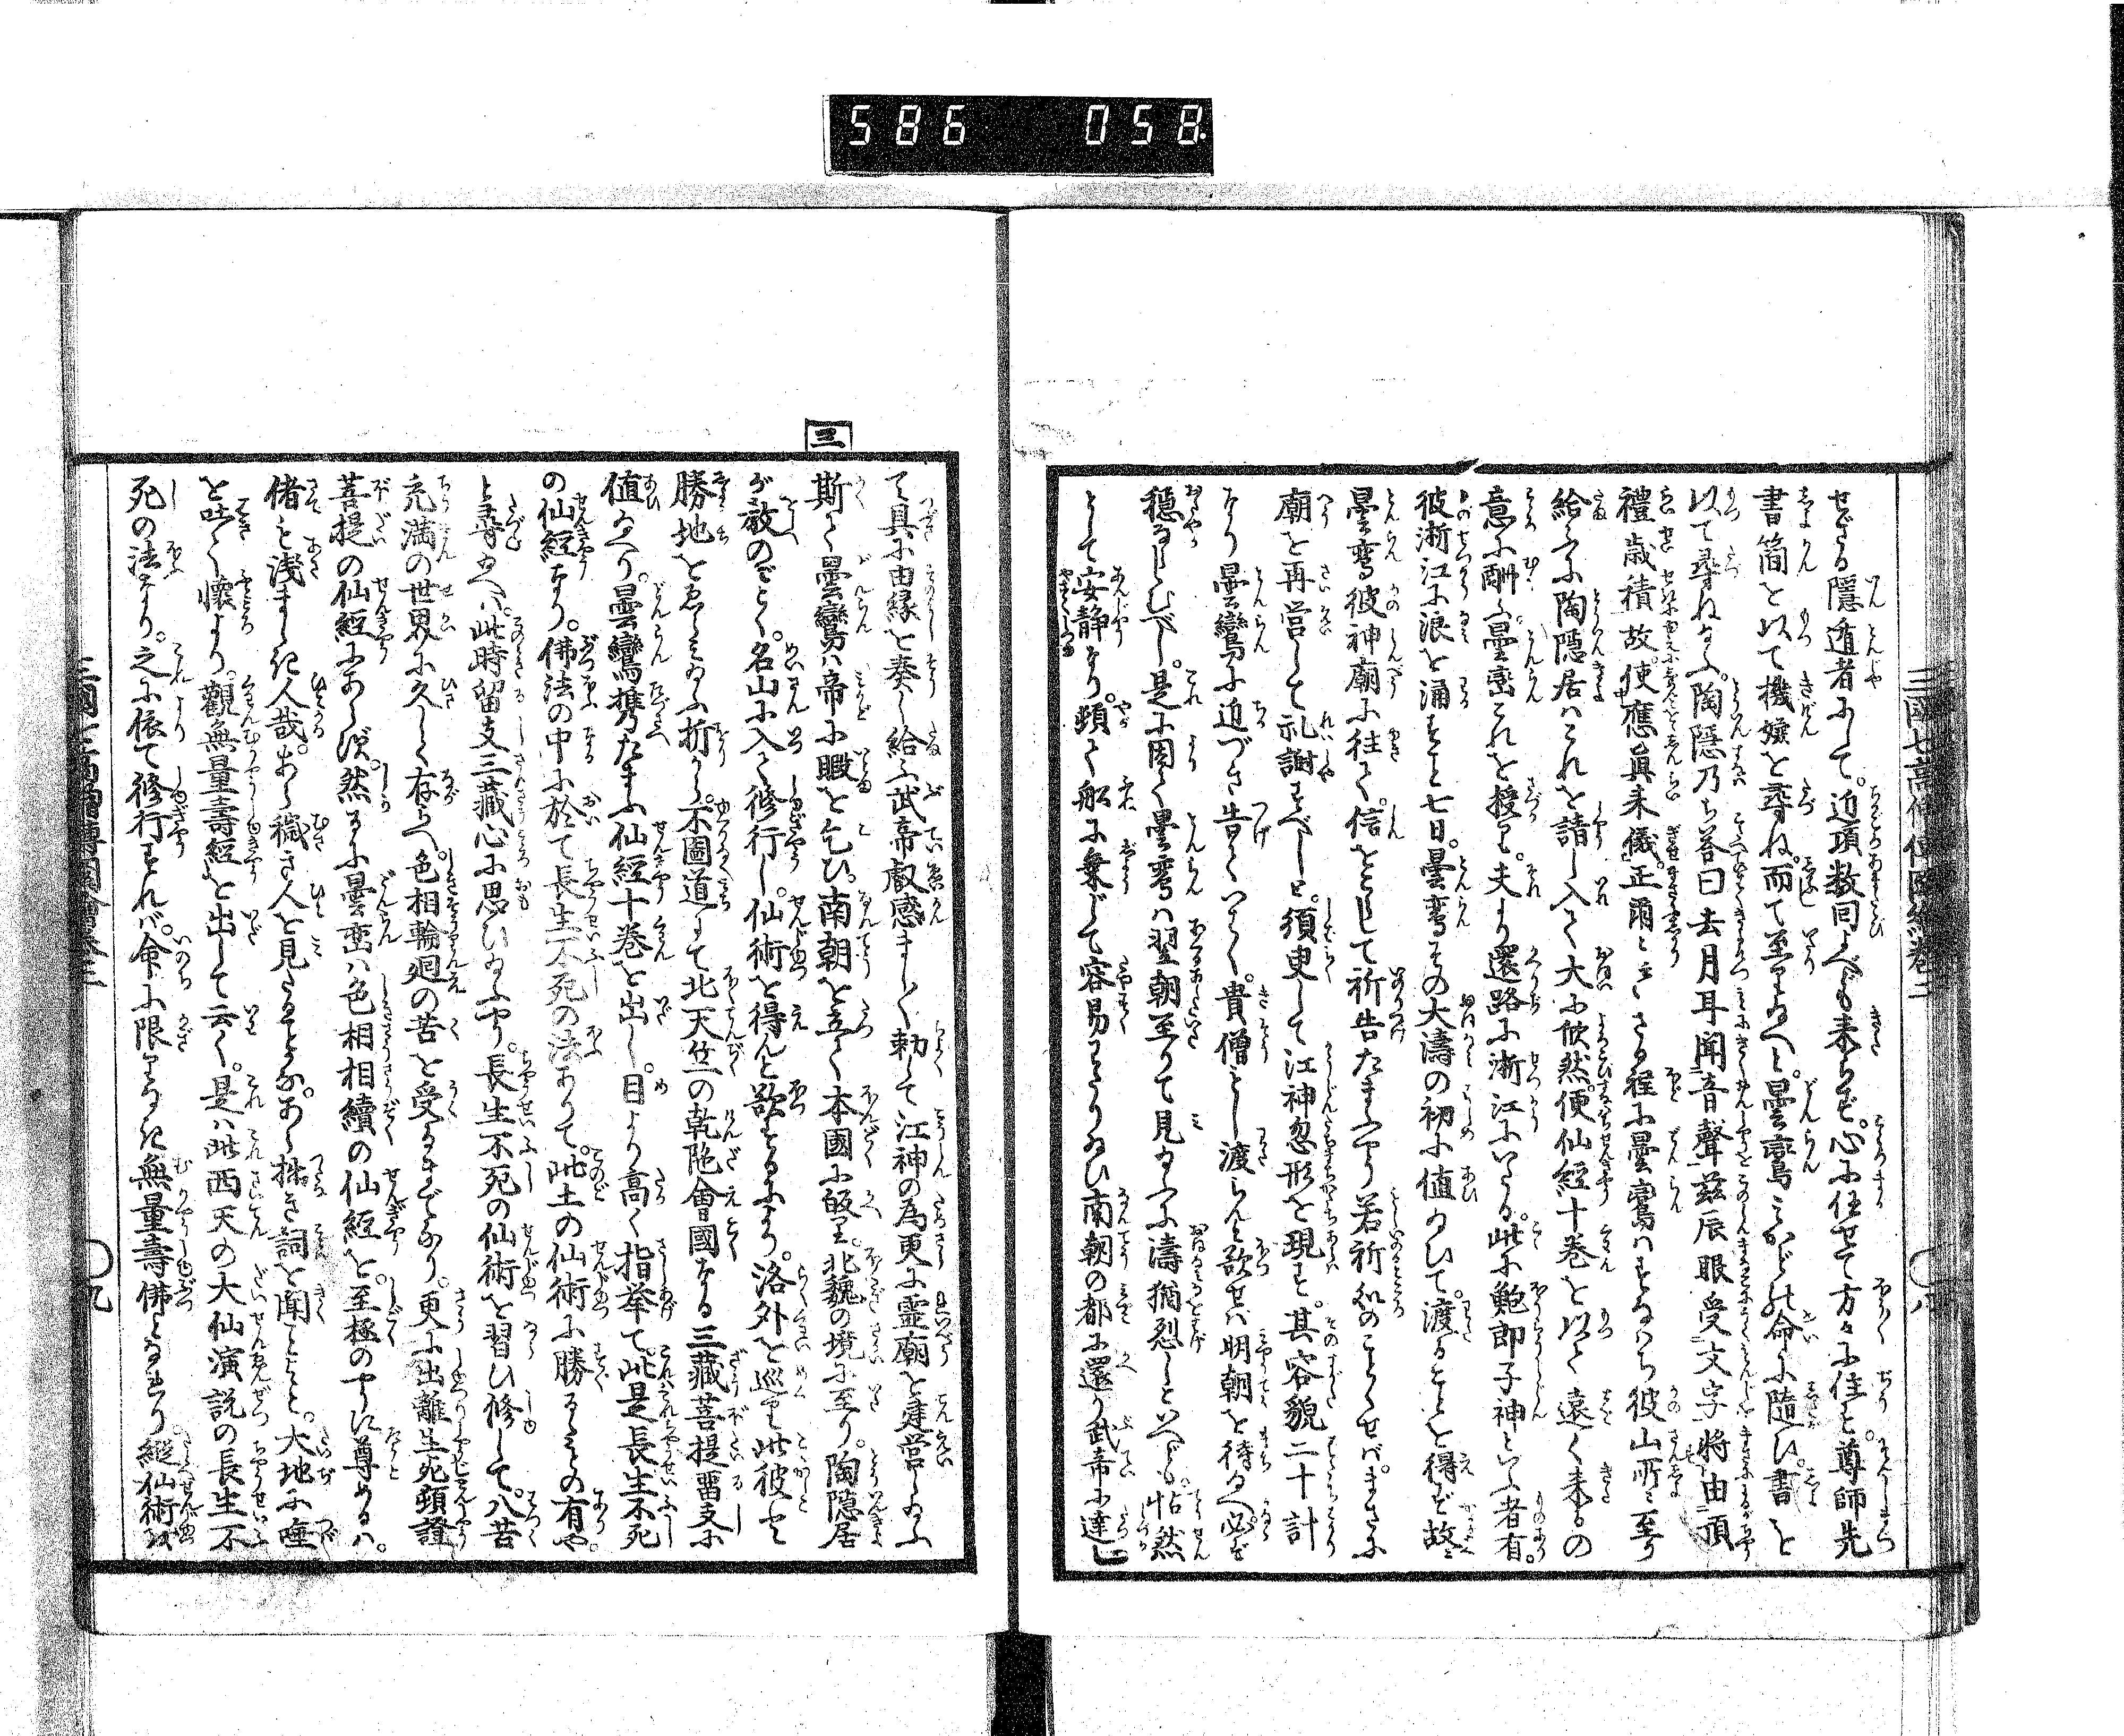 586 058
三國七高僧傳圖繪卷三
八
せざる隱遁者にして。迫項数囘よべども来らず。心に任せて方々に住す。尊師先
書簡を以て機嫌を尋ね。而て至り給へと。曇鸞みかどの命に隨ひ。書を
以て尋ね給ふ。陶隱乃ち答曰去月耳聞音聲茲辰眼受文字将由頂
禮歳積故使應眞来儀。正爾とき。さる程に曇鸞はすなはち彼山所に至り
給ふに陶隱居はこれを請し入て大に欣然便仙經十巻を以て遠く来るの
意に酬ふ。曇鸞これを授り。夫より還路に浙江にいたる。此に鮑郎子神といふ者有。
彼浙江に浪を涌すこと七日。曇鸞その大濤の初に値ひて。渡ることを得ず故に
曇鸞彼神廟に往て。信をもして祈告たまふやう若祈る所のことくせば。まさに
廟を再営して礼謝すべしと。須臾して江神忽形を現す。其容貌二十計
なり曇鸞に近づき告ていはく。貴僧もし渡らんと欲せば明朝を待給へ必ず
穏ならしむべし。是に因て曇鸞は翌朝至りて見給ふに濤猶烈しといへども。怙然
として安静なり。頓て船に乗じて容易わたり給ひ南朝の都に還り武帝に達し
て具に由縁を奏し給ふ武帝叡感まし〳〵て勅して江神の為更に霊廟を建営し給ふ
三
斯て曇鸞は帝に暇を乞ひ。南朝を立て本國に皈り。北魏の境に至り。陶隱居
が教のごとく。名山に入て修行し。仙術を得んと欲するにより。洛外を巡り此彼と
勝地をゑらみ給ふ折から。不圖道にて北天竺の乾陁會國なる三藏菩提畱支に
値給へり。曇鸞携たまふ仙經十巻を出し。目より高く指挙て。此是長生不死
の仙經なり。佛法の中に於て長生不死の法ありて。此土の仙術に勝るゝもの有や。
と尋給へば。此時留支三藏心に思ひ給ふやう。長生不死の仙術を習ひ修して。八苦
充満の世界に久しく存へ。色相輪廻の苦を受べきまでなり。更に出離生死頓證
菩提の仙經にあらず。然るに曇鸞は色相相續の仙經を。至極のやうに尊めるは。
偖も浅ましき人哉。あら穢き人を見たることかな。あら拙き詞を聞ことゝ。大地に唾
を吐て懐より。觀無量壽經を出して云く。是は此西天の大仙演説の長生不
死の法なり。之に依て修行すれば。命に限りなき無量壽佛となるなり縦仙術を
三國七高僧傳圖繪卷三
九